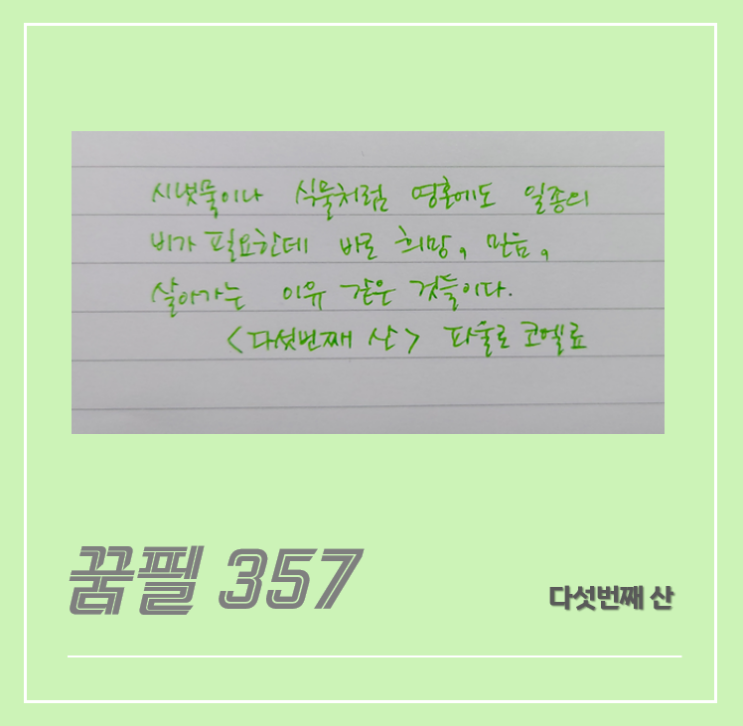 시냇물이나 식물처럼 영혼에도 일종의
비가 필요한데 바로 희망, 믿음,
살아가는 이유 같은 것들이다.
<다섯번째 산> 파울로 코엘료
꿈필 357
다섯번째 산